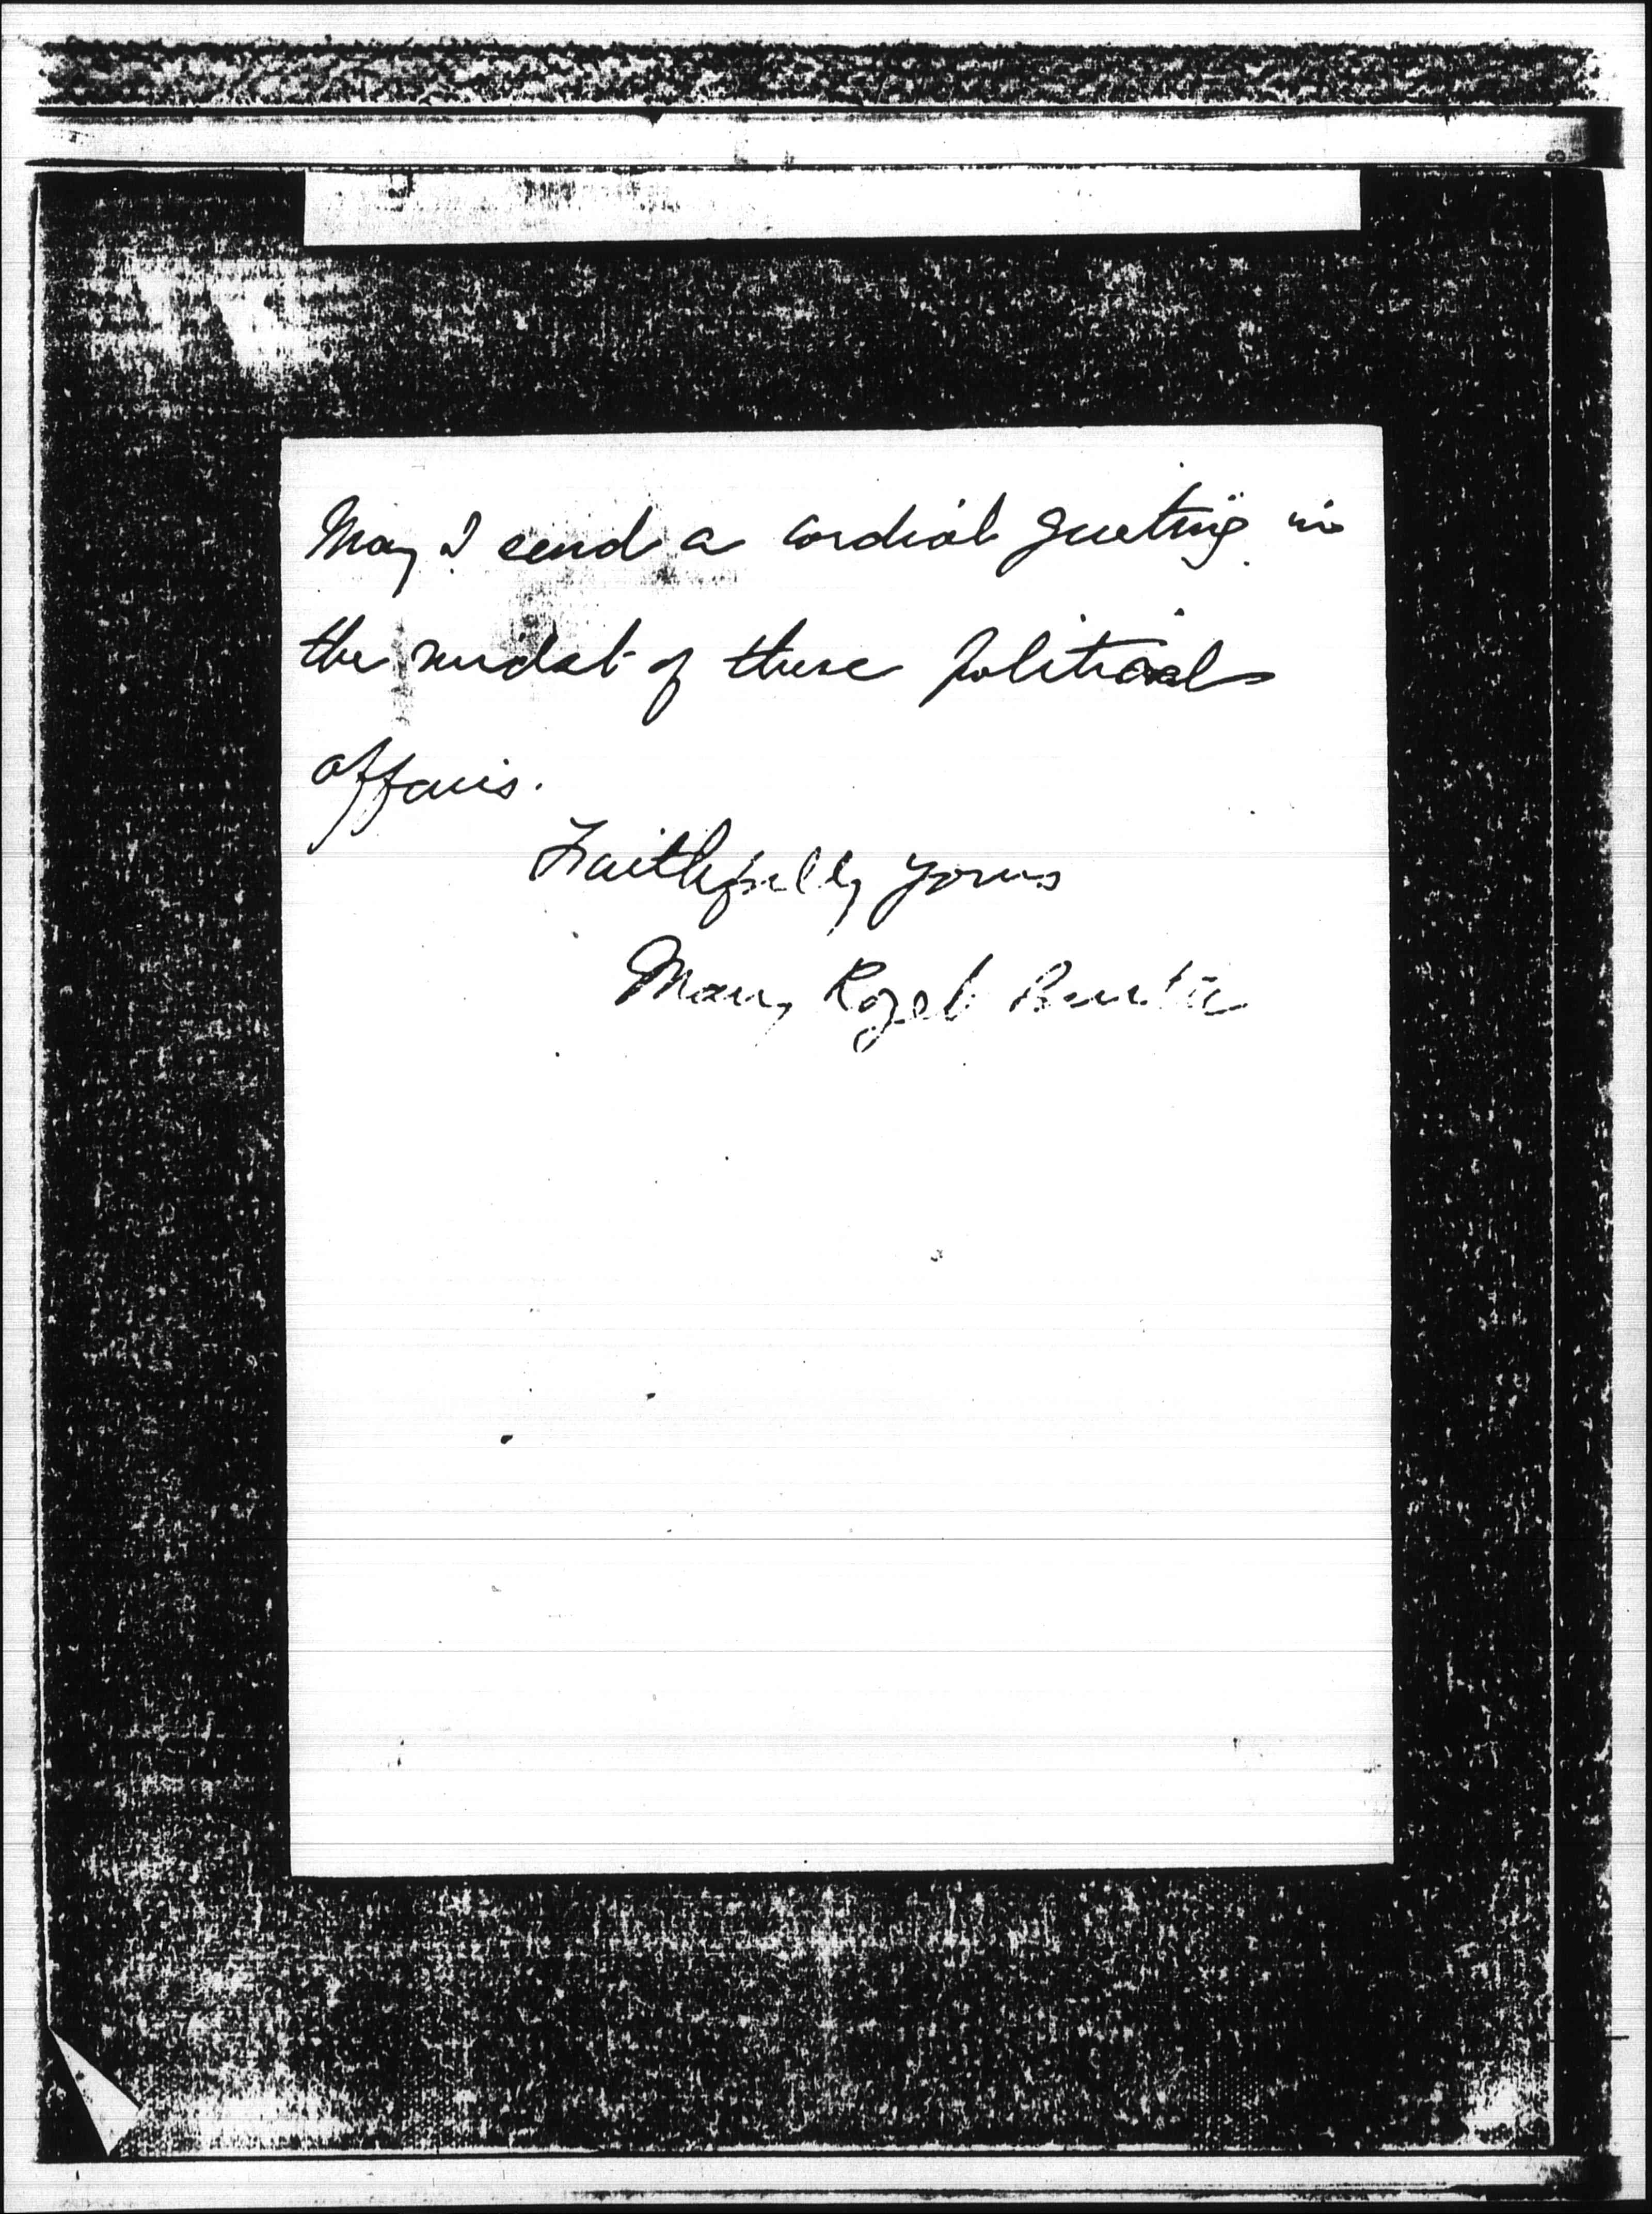 May I send a cordial greeting in
the midst of these political
affairs.
Faithfully yours
Mary Rozet